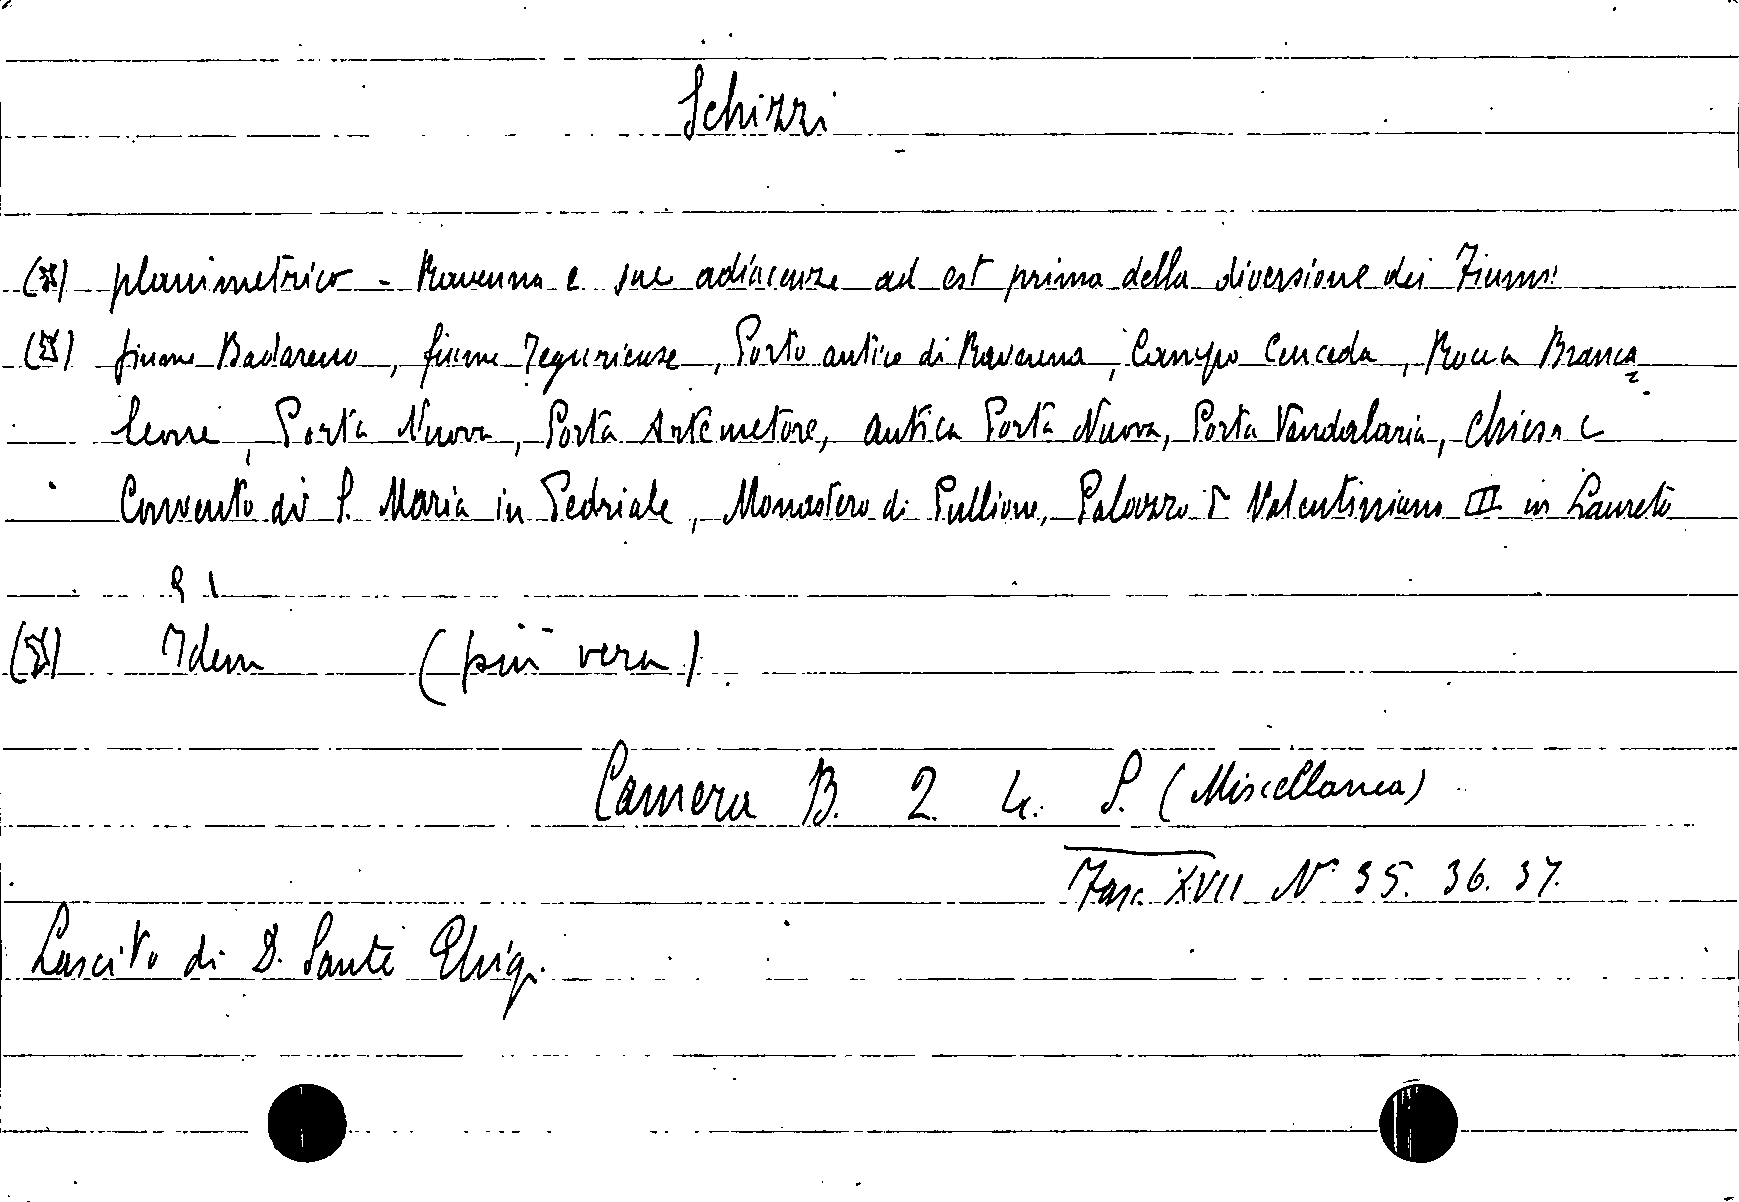 Schizzi
(X) planimetrico - Ravenna e sue adiacenze ad est prima della diversione dei Fiumi
(X) fiume Badareno, fiume Teguriense, Porto antico di Ravenna, Campo Cenceda, Rocca Branca
leone, Porta Nuova, Porta Artemetore, antica Porta Nuova, Porta Vandalaria, Chiesa e
Convento di S. Maria in Pedriale, Monastero di Pullione, Palazzo Valentiniano III in Laureto
(X) Idem (più vera)
Camera B. 2 4. S. (Miscellanea)
Fasc. XVII N° 35. 36. 37.
Lascito di D. Sante Ghigi